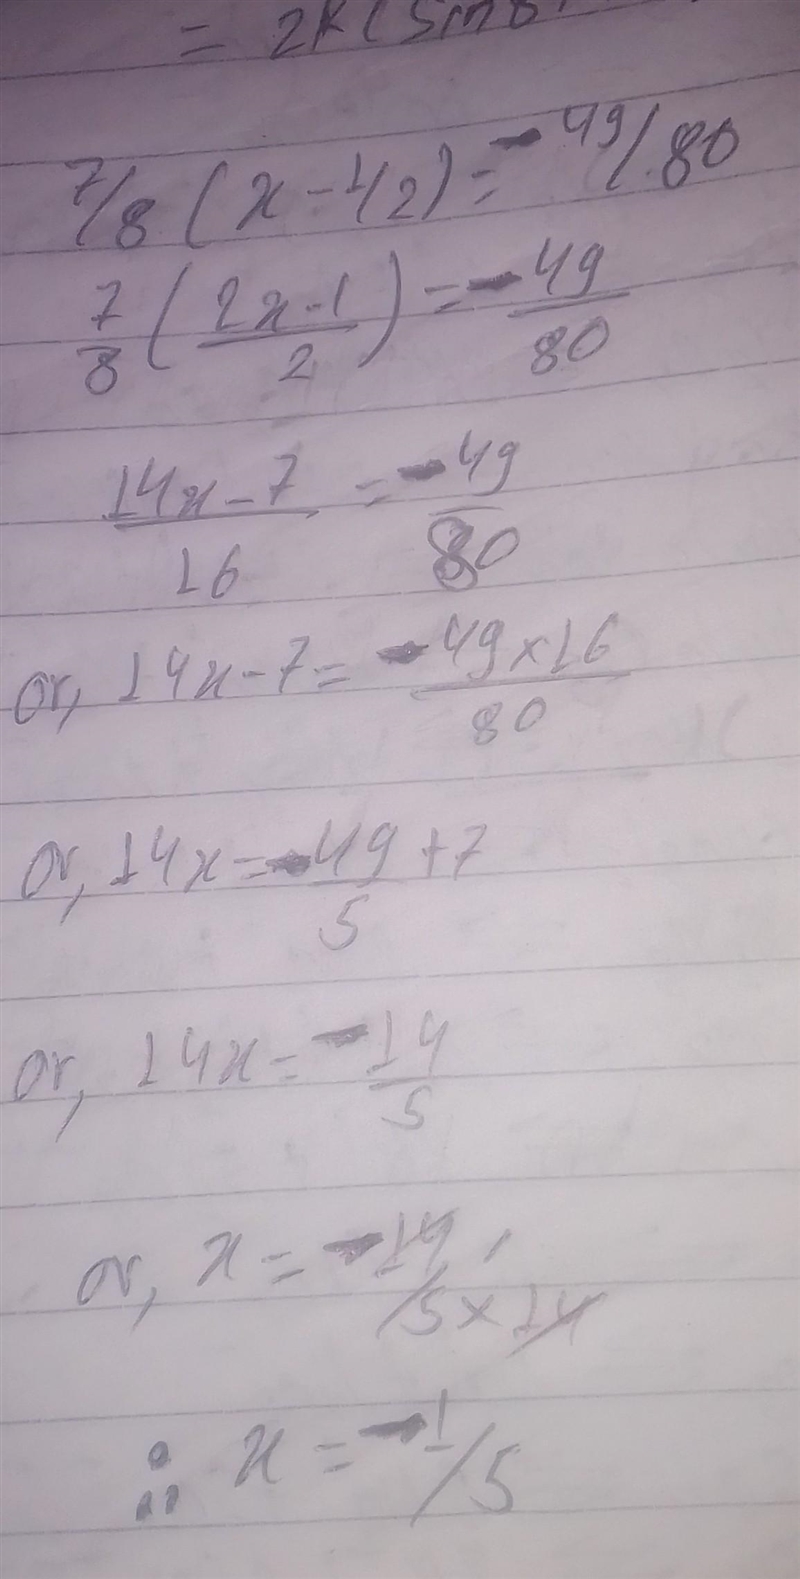 = 2R(Sin
7/8 (x - 1/2) = - 49/80
7/8 (2x-1/2) = - 49/80
14x - 7/16 = - 49/80
or, 14x - 7 = - 49×16/80
or, 14x = - 49/5 + 7
or, 14x = - 14/5
or, x = - 14/5×14
∴ x = - 1/5